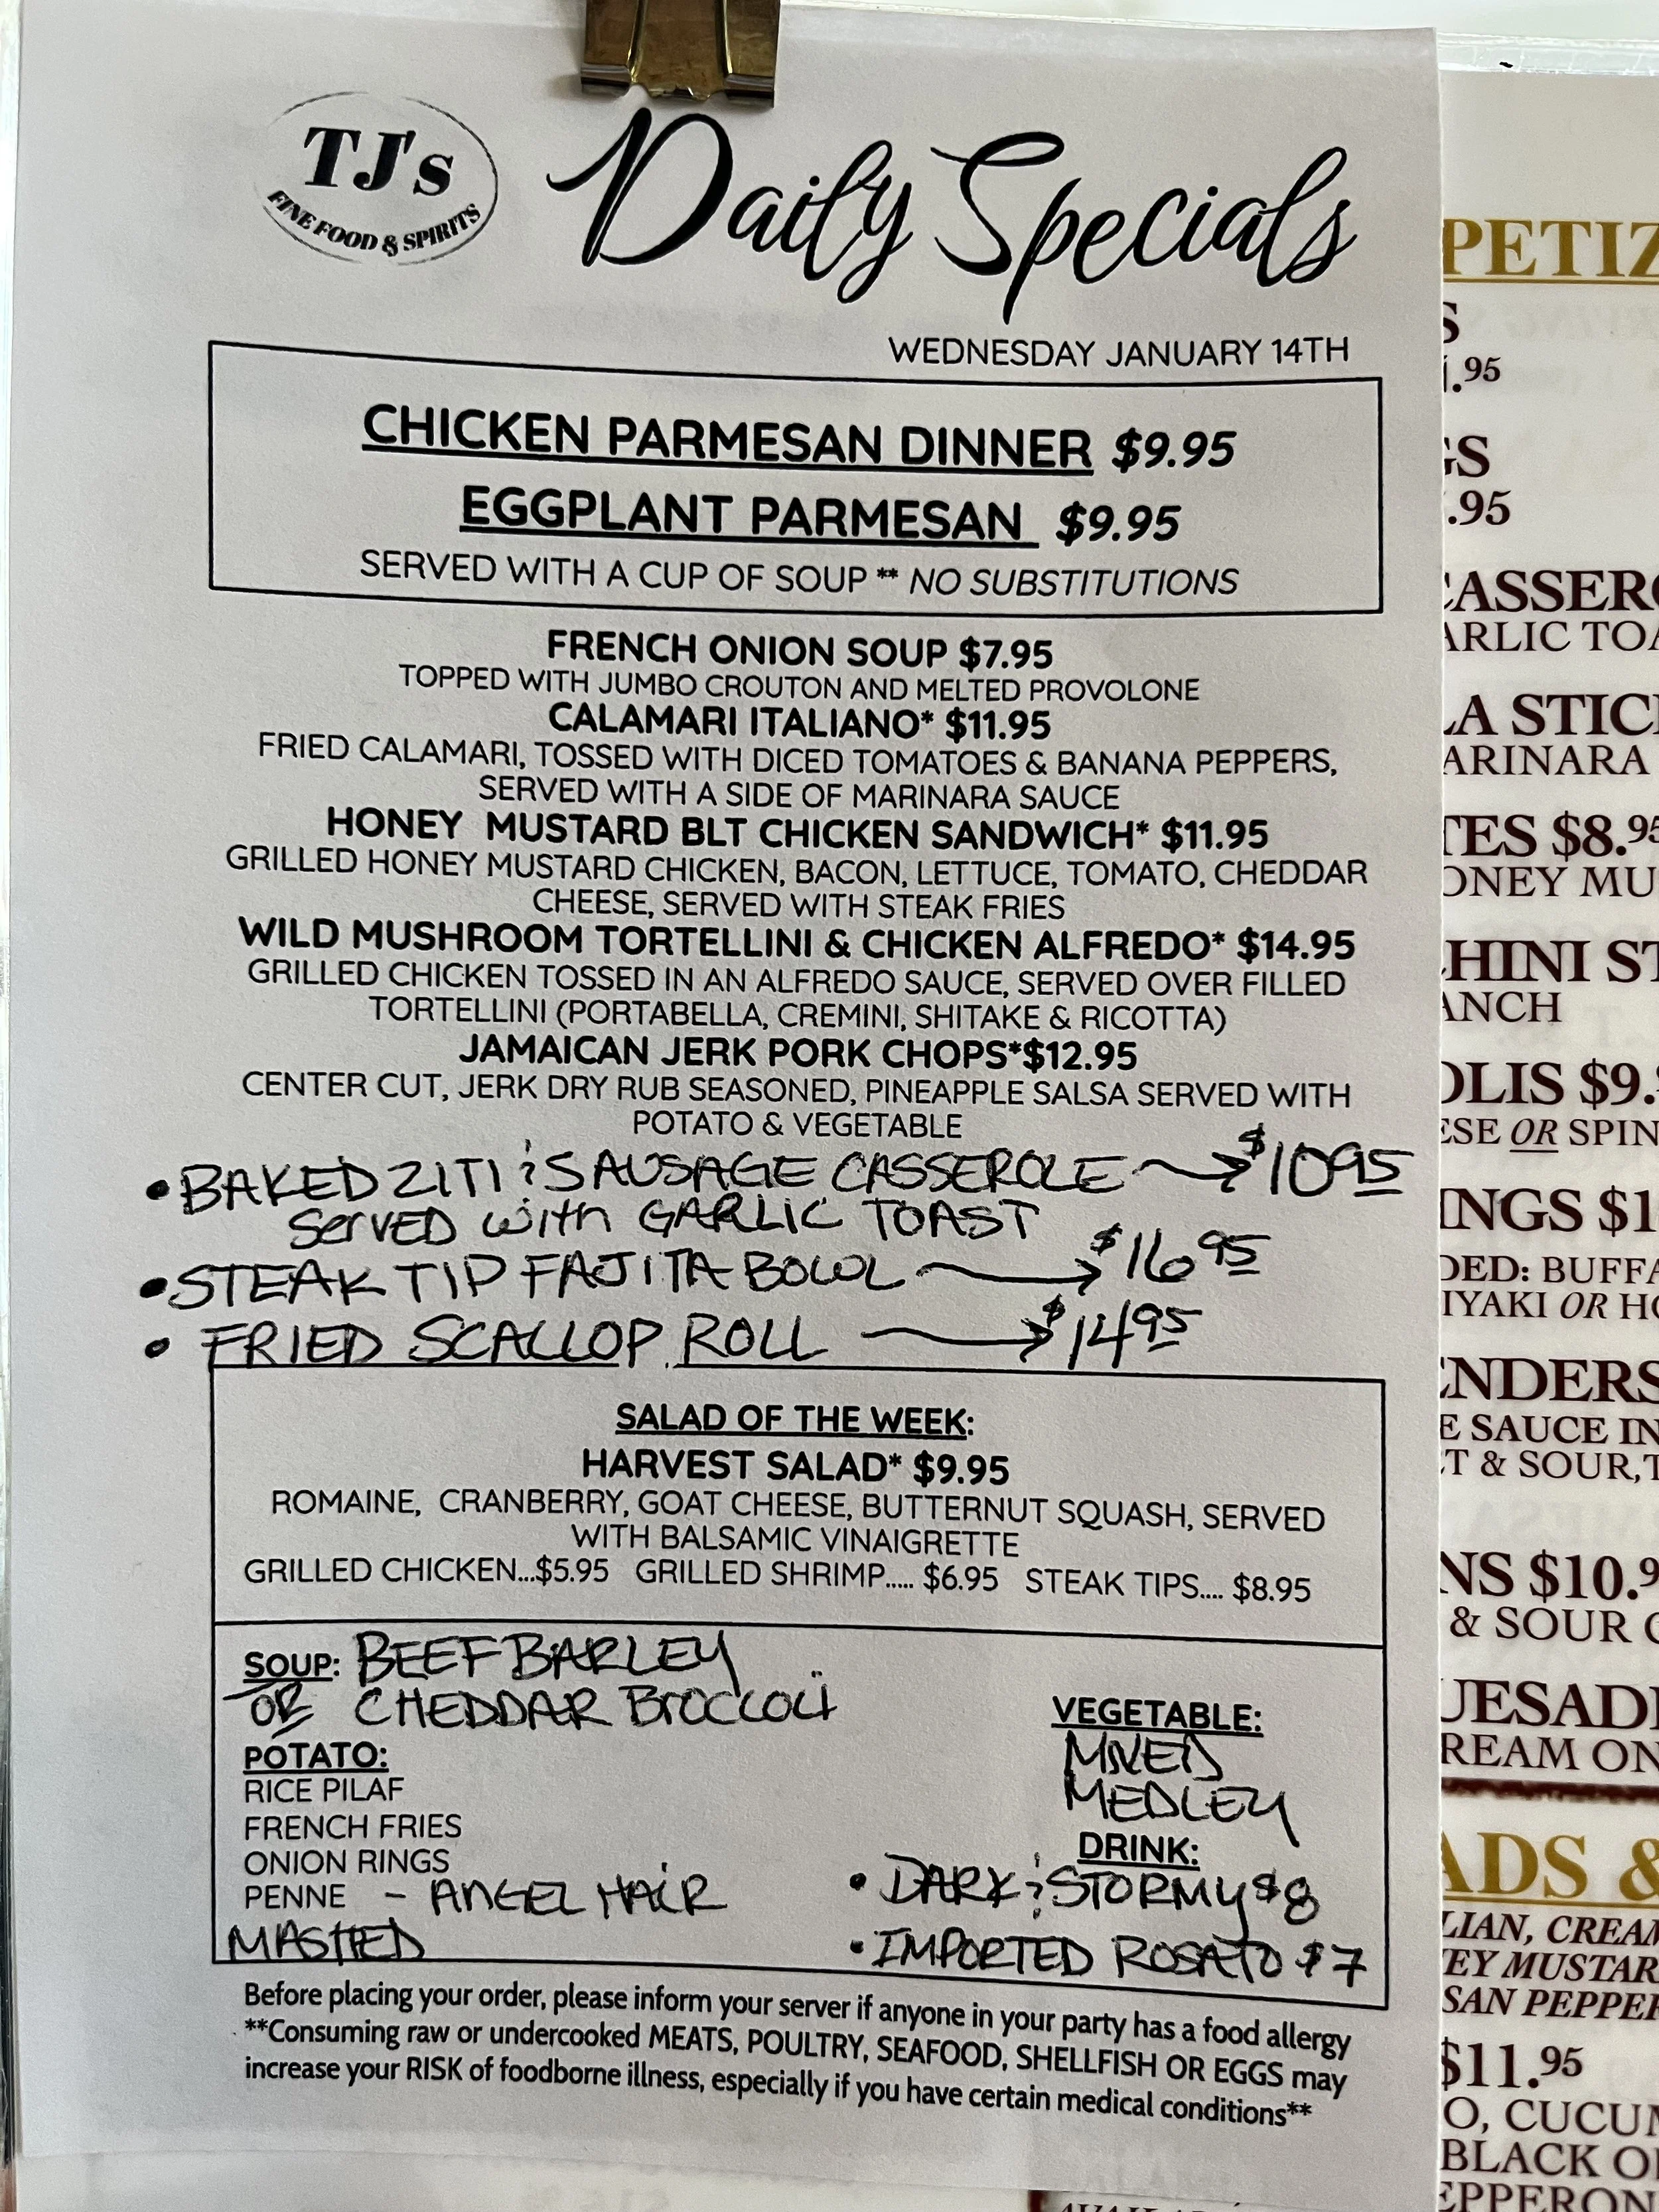 TJ's
FINE FOOD & SPIRITS
Daily Specials
WEDNESDAY JANUARY 14TH
CHICKEN PARMESAN DINNER $9.95
EGGPLANT PARMESAN $9.95
SERVED WITH A CUP OF SOUP ** NO SUBSTITUTIONS
FRENCH ONION SOUP $7.95
TOPPED WITH JUMBO CROUTON AND MELTED PROVOLONE
CALAMARI ITALIANO* $11.95
FRIED CALAMARI, TOSSED WITH DICED TOMATOES & BANANA PEPPERS,
SERVED WITH A SIDE OF MARINARA SAUCE
HONEY MUSTARD BLT CHICKEN SANDWICH* $11.95
GRILLED HONEY MUSTARD CHICKEN, BACON, LETTUCE, TOMATO, CHEDDAR
CHEESE, SERVED WITH STEAK FRIES
WILD MUSHROOM TORTELLINI & CHICKEN ALFREDO* $14.95
GRILLED CHICKEN TOSSED IN AN ALFREDO SAUCE, SERVED OVER FILLED
TORTELLINI (PORTABELLA, CREMINI, SHITAKE & RICOTTA)
JAMAICAN JERK PORK CHOPS*$12.95
CENTER CUT, JERK DRY RUB SEASONED, PINEAPPLE SALSA SERVED WITH
POTATO & VEGETABLE
• BAKED ZITI & SAUSAGE CASSEROLE → $10.95
SERVED WITH GARLIC TOAST
• STEAK TIP FAJITA BOWL → $16.95
• FRIED SCALLOP ROLL → $14.95
SALAD OF THE WEEK:
HARVEST SALAD* $9.95
ROMAINE, CRANBERRY, GOAT CHEESE, BUTTERNUT SQUASH, SERVED
WITH BALSAMIC VINAIGRETTE
GRILLED CHICKEN...$5.95 GRILLED SHRIMP..... $6.95 STEAK TIPS.... $8.95
SOUP: BEEF BARLEY
OR CHEDDAR BROCCOLI
POTATO:
RICE PILAF
FRENCH FRIES
ONION RINGS
PENNE - ANGEL HAIR
MASHED
VEGETABLE:
MIXED
MEDLEY
DRINK:
• DARK & STORMY $8
• IMPORTED ROSATO $7
Before placing your order, please inform your server if anyone in your party has a food allergy
**Consuming raw or undercooked MEATS, POULTRY, SEAFOOD, SHELLFISH OR EGGS may
increase your RISK of foodborne illness, especially if you have certain medical conditions**
PETIZ
S
.95
GS
.95
CASSERO
ARLIC TOA
LA STICK
ARINARA
TES $8.95
ONEY MU
HINI ST
ANCH
OLIS $9.
ESE OR SPIN
INGS $1
DED: BUFFA
IYAKI OR HO
ENDERS
E SAUCE IN
T & SOUR,T
NS $10.9
& SOUR C
UESADI
REAM ON
ADS &
LIAN, CREAM
EY MUSTAR
SAN PEPPER
$11.95
O, CUCUM
BLACK OL
EPPERON